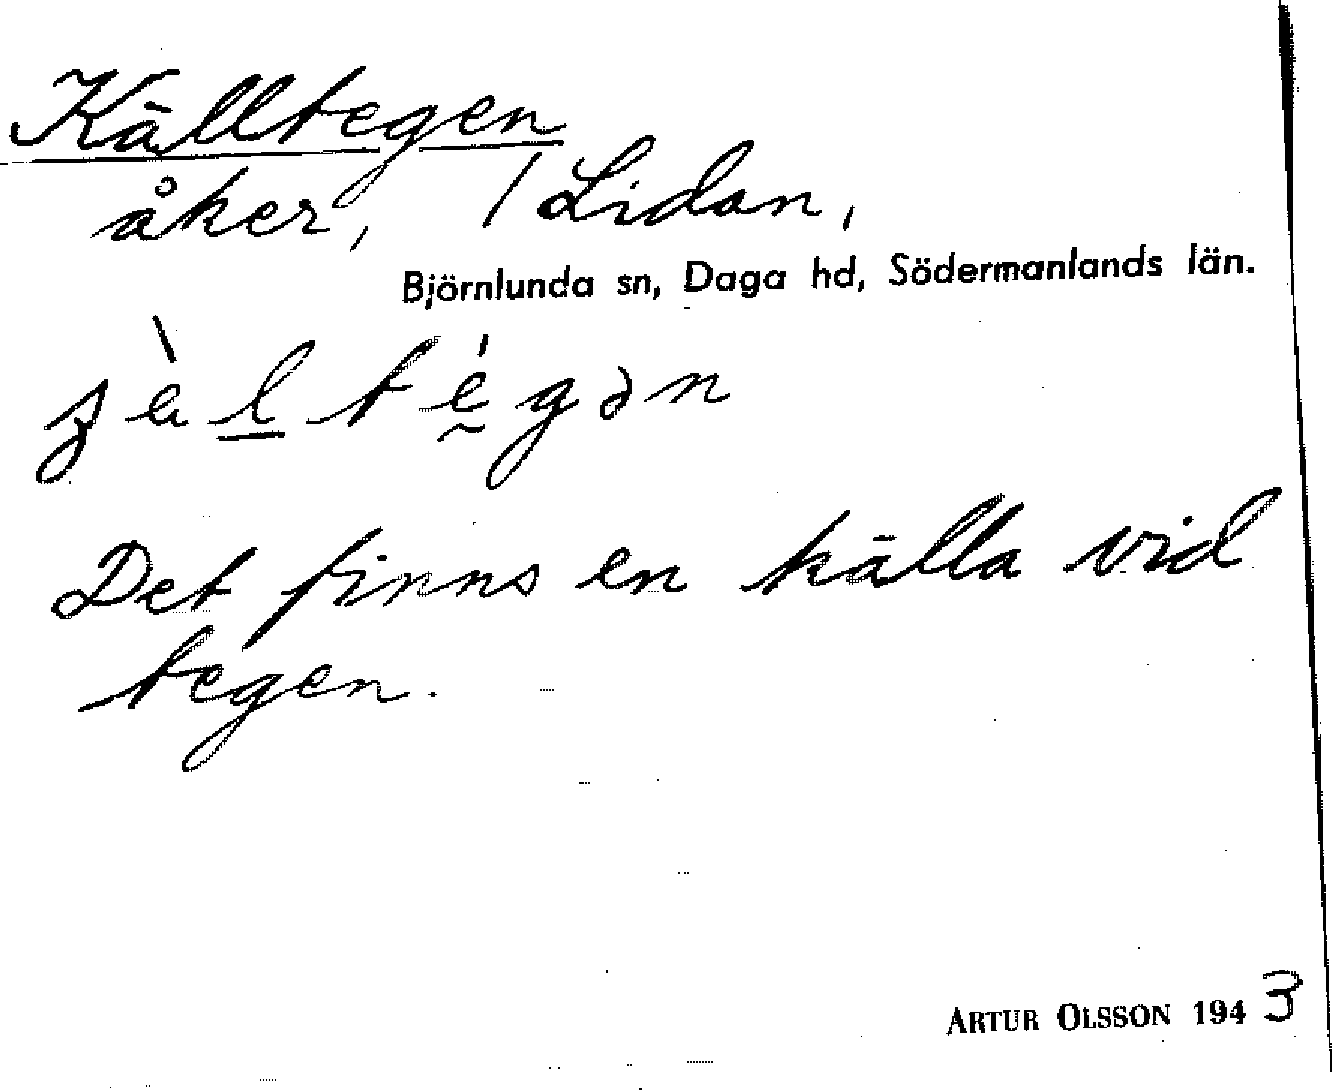 Källtegen
åker, / Lidan,
Björnlunda sn, Daga hd, Södermanlands län.
Det finns en källa vid
tegen.
ARTUR OLSSON 1943